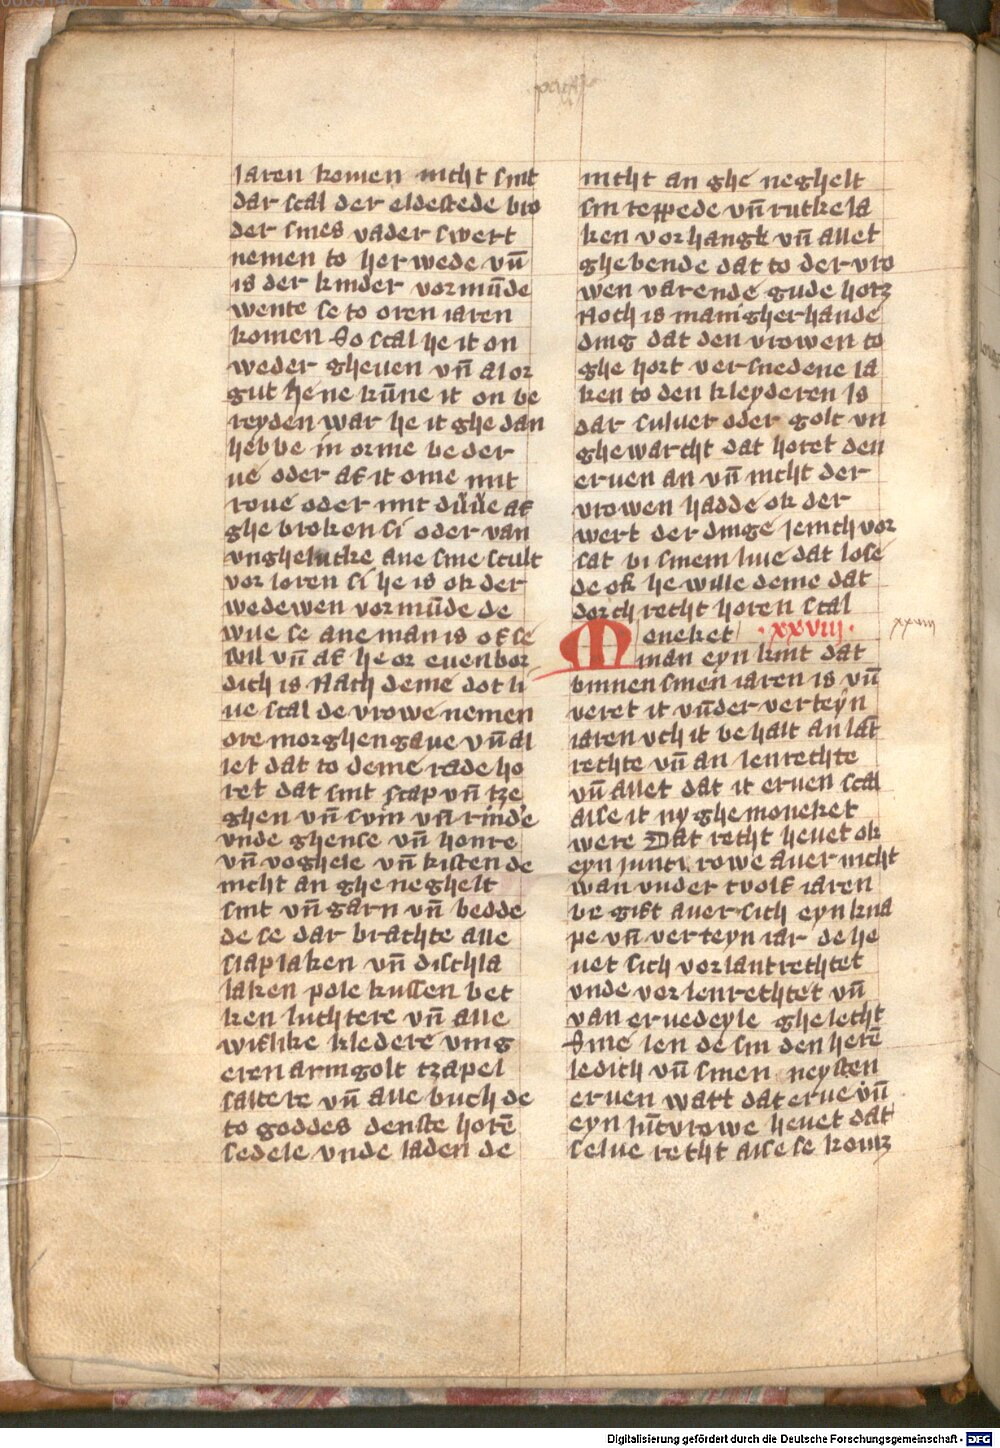 jaren komen nicht sint
dar scal der eldestede bro
der sines vader swert
nemen to her wede vn̄
is der kinder vormūde
wente se to oren iaren
komen So scal he it on
weder gheuen vn̄ al or
gut he ne kūne it on be
reyden war he it ghe dan
hebbe in orme beder
ue oder af it ome mit
roue oder mit duue af
ghe broken si oder van
vnghelucke ane sine scult
vor loren si he is ok der
wedewen vormūde de
wile se ane man is of se
wil vn̄ af he or euenbor
dich is Nach deme dot li
ue scal de vrowe nemen
ore morghengaue vn̄ al
let dat to deme rade ho
ret dat sint scap vn̄ tze
ghen vn̄ svin vn̄ rinde
vnde ghense vn̄ honre
vn̄ voghele vn̄ kisten de
nicht an ghe neghelt
sint vn̄ garn vn̄ bedde
de se dar brachte alle
slaplaken vn̄ dischla
laken pole kussen bet
ken luchtere vn̄ alle
wiflike kledere ving
eren armgolt tzapel
saltere vn̄ alle buch de
to goddes denste horē
sedele vnde laden de
nicht an ghe neghelt
sin teppede vn̄ rutkela
ken vorhangk vn̄ allet
ghebende dat to der vro
wen varende gude hort
Noch is manigherhande
ding dat den vrowen to
ghe hort versnedene la
ken to den kleyderen Is
dar suluer oder golt vn
ghewarcht dat horet den
eruen an vn̄ nicht der
vrowen hadde ok der
wert der dinge jenich vor
sat bi sinem liue dat lose
de ok he wille deme dat
dorch recht horen scal
Moneket .xxviij. xxviij
man eyn kint dat
binnen sinen iaren is vn̄
veret it vn̄der verteyn
iaren vth it be halt an lāt
rechte vn̄ an lenrechte
vn̄ allet dat it eruen scal
alse it ny ghe moneket
were Dat recht heuet ok
eyn junc vrowe auer nicht
wan vnder twolf iaren
be gift auer sich eyn kna
pe vn̄ verteyn iar de he
uet sich vor lantrechtet
vnde vor lenrechtet vn̄
van eruedeyle ghelecht
Sine len de sin den herē
ledich vn̄ sinen neysten
eruen watt dat erue vn̄
eyn jūcvrowe heuet dat
selue recht alse se komz
Digitalisierung gefördert durch die Deutsche Forschungsgemeinschaft - DFG